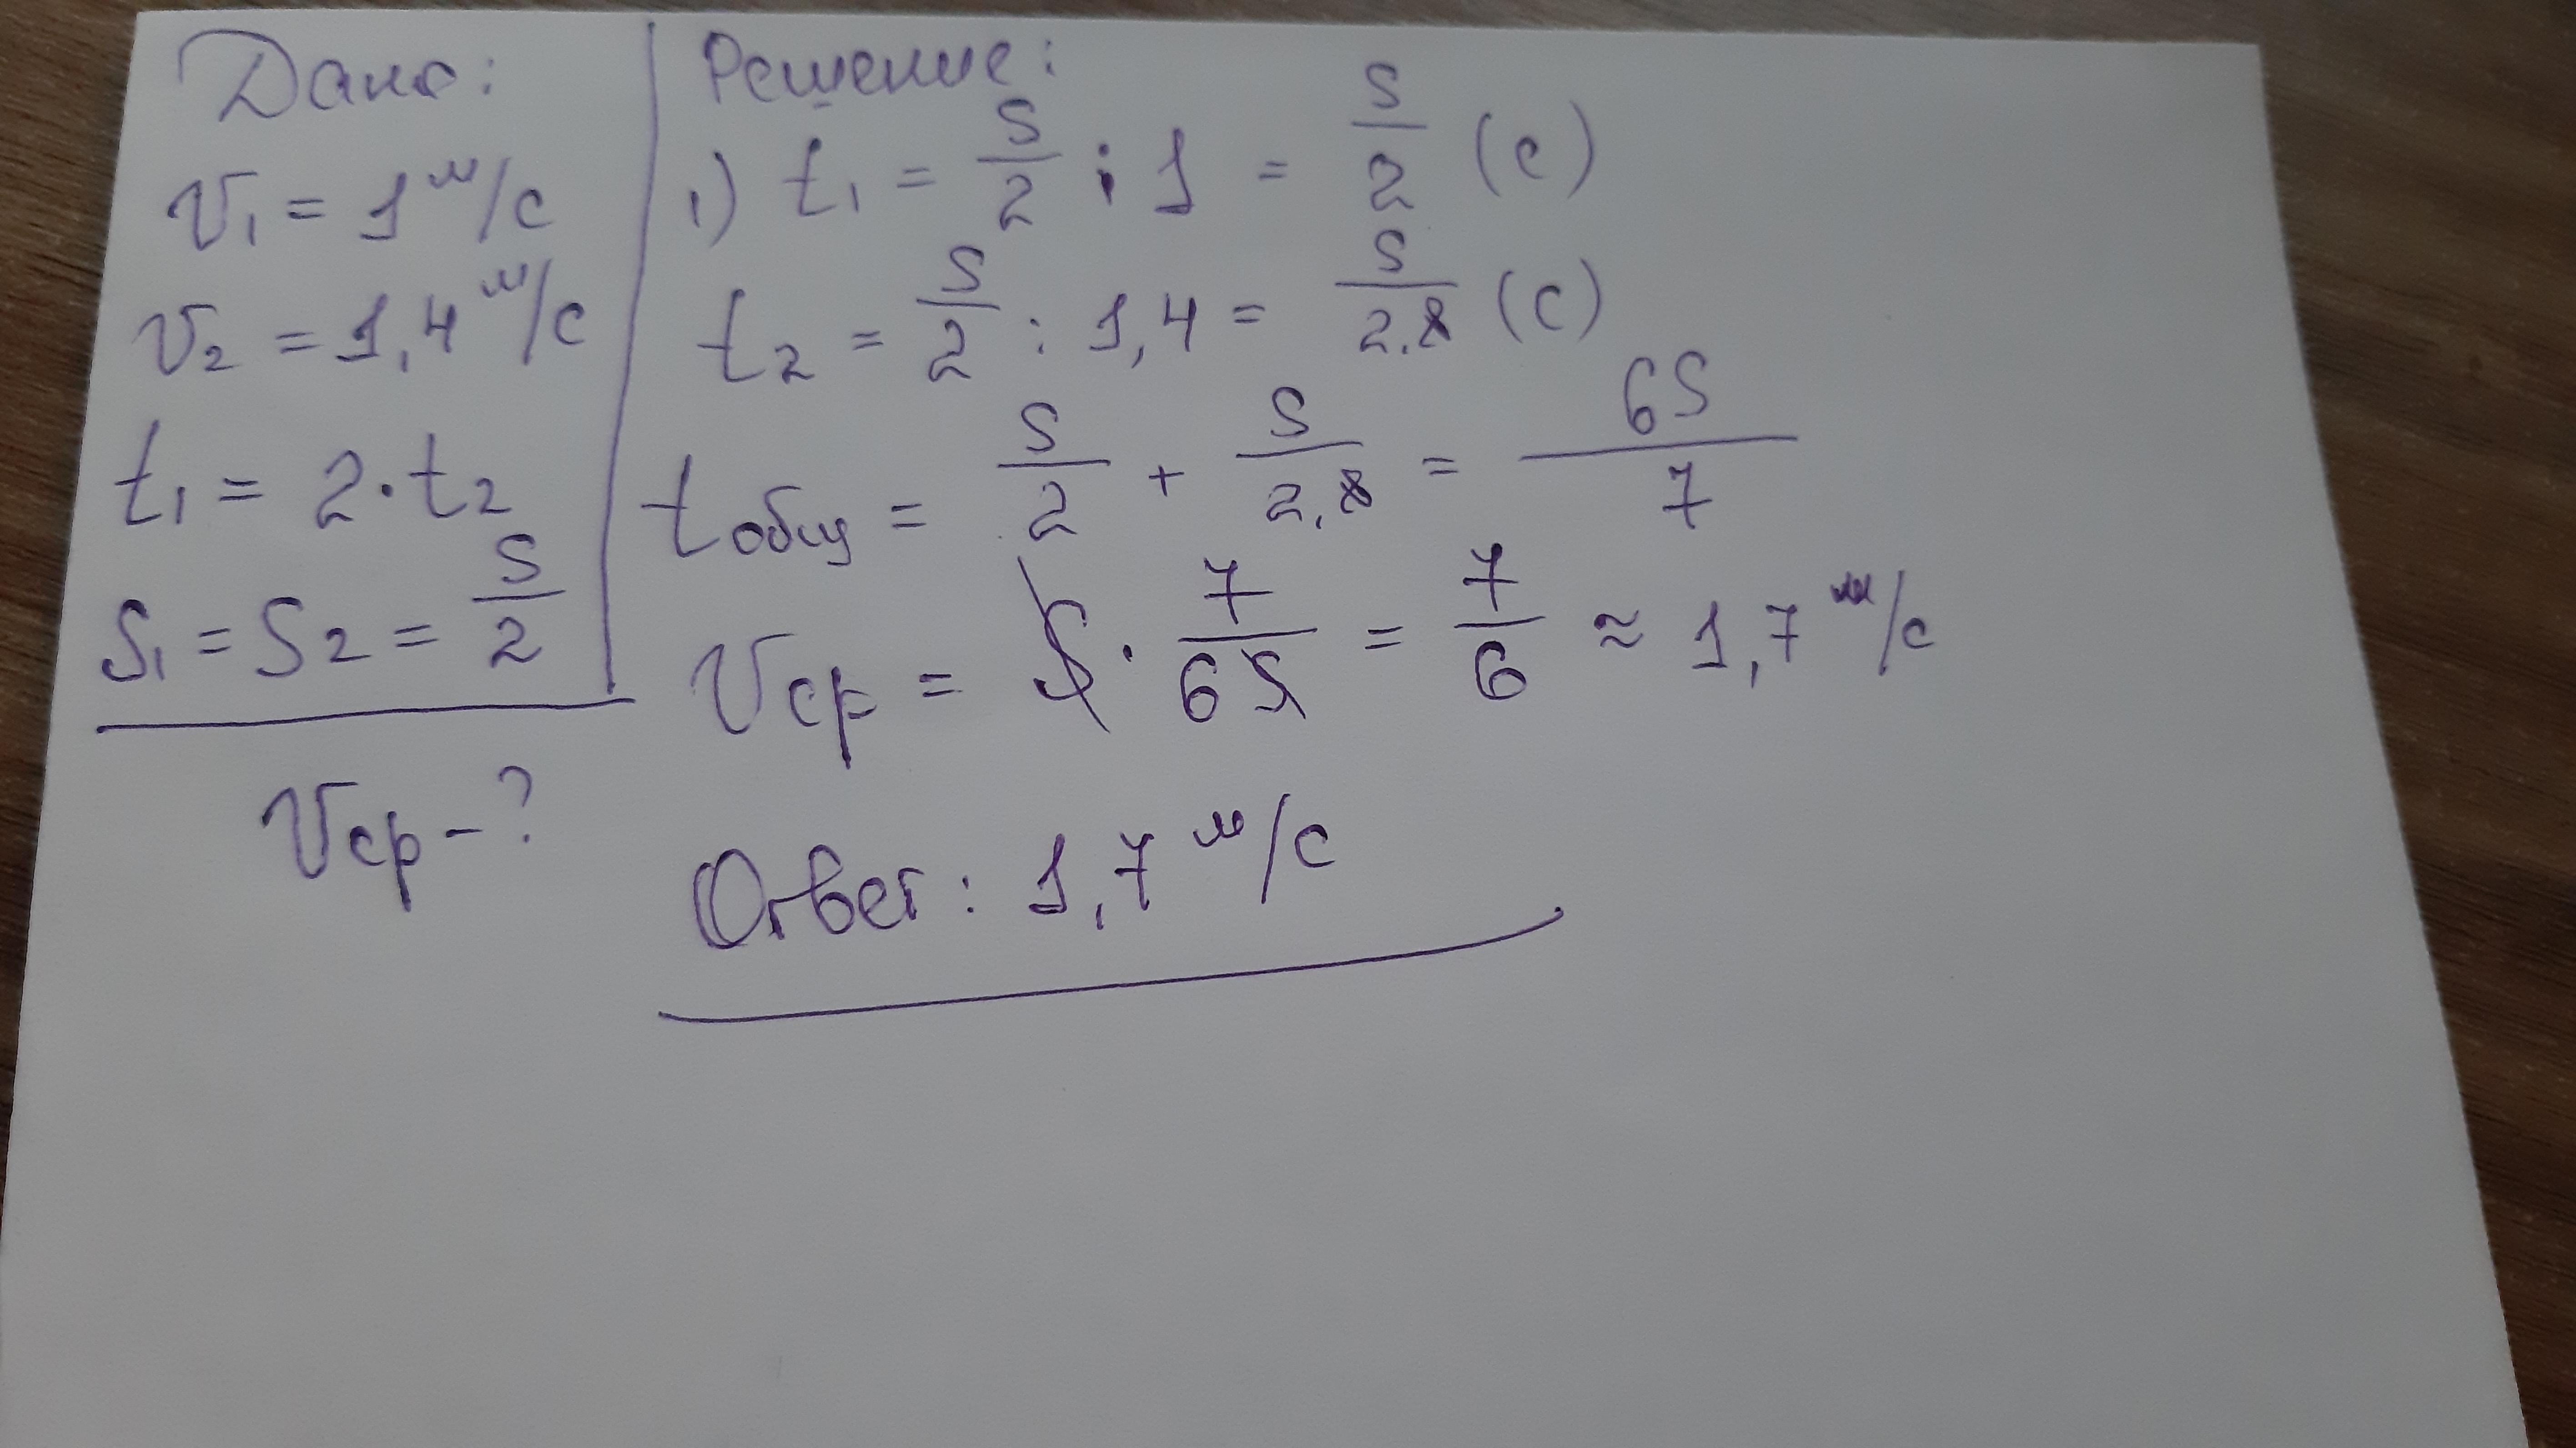 Дано:
υ₁ = 1 м/с
υ₂ = 1,4 м/с
t₁ = 2·t₂
S₁ = S₂ = S/2
υср - ?
Решение:
1) t₁ = S/2 : 1 = S/2 (с)
t₂ = S/2 : 1,4 = S/2,8 (с)
tобщ = S/2 + S/2,8 = 6S/7
υср = S · 7/6S = 7/6 ≈ 1,7 м/с
Ответ: 1,7 м/с